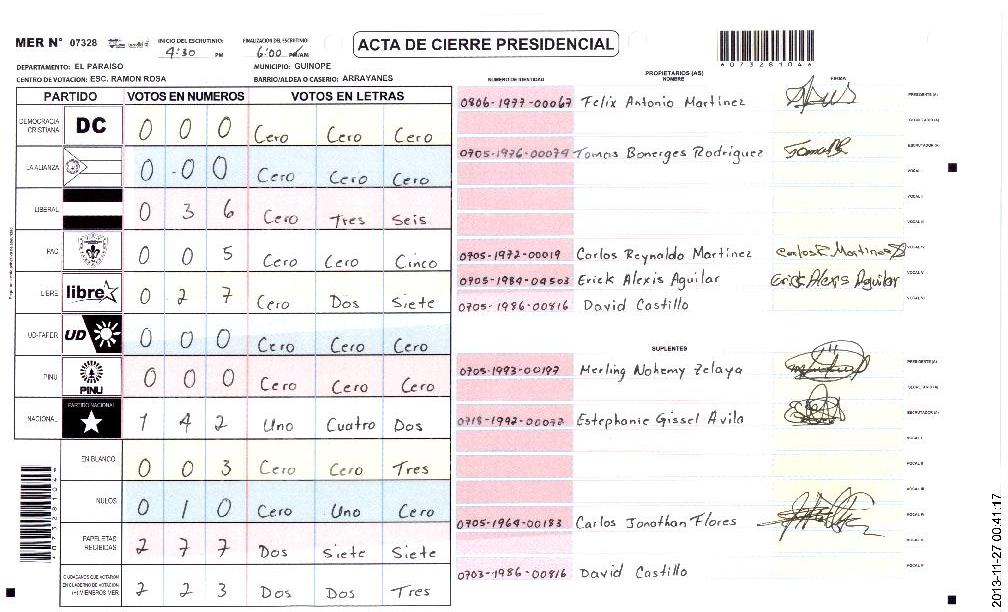 MER N° 07328 INICIO DEL ESCRUTINIO: 4:30 PM FINALIZACION DEL ESCRUTINIO: 6:00 PM/AM ACTA DE CIERRE PRESIDENCIAL
DEPARTAMENTO: EL PARAISO MUNICIPIO: GUINOPE
CENTRO DE VOTACION: ESC. RAMON ROSA BARRIO/ALDEA O CASERIO: ARRAYANES
PARTIDO VOTOS EN NUMEROS VOTOS EN LETRAS
DEMOCRACIA CRISTIANA DC 0 0 0 Cero Cero Cero
LA ALIANZA 0 0 0 Cero Cero Cero
LIBERAL 0 3 6 Cero Tres Seis
PAC 0 0 5 Cero Cero Cinco
LIBRE libre 0 2 7 Cero Dos Siete
UD-FAPER UD 0 0 0 Cero Cero Cero
PINU PINU 0 0 0 Cero Cero Cero
NACIONAL PARTIDO NACIONAL 1 4 2 Uno Cuatro Dos
EN BLANCO 0 0 3 Cero Cero Tres
NULOS 0 1 0 Cero Uno Cero
PAPELETAS RECIBIDAS 2 7 7 Dos Siete Siete
CIUDADANOS QUE VOTARON EN CUADERNO DE VOTACION (+) MIEMBROS MER 2 2 3 Dos Dos Tres
PROPIETARIOS (AS)
NUMERO DE IDENTIDAD NOMBRE FIRMA
0806-1977-00067 Felix Antonio Martinez PRESIDENTE (A)
SECRETARIO (A)
0705-1976-00079 Tomas Bonerges Rodriguez ESCRUTADOR (A)
VOCAL I
VOCAL II
VOCAL III
0705-1972-00019 Carlos Reynaldo Martinez Carlos R Martinez VOCAL IV
0705-1984-04503 Erick Alexis Aguilar Erick Alexis Aguilar VOCAL V
0705-1986-00816 David Castillo VOCAL VI
SUPLENTES
0705-1993-00197 Merling Nohemy Zelaya PRESIDENTE (A)
SECRETARIO (A)
0718-1992-00072 Estephanie Gissel Avila ESCRUTADOR (A)
VOCAL I
VOCAL II
VOCAL III
0705-1964-00183 Carlos Jonathan Flores VOCAL IV
VOCAL V
0703-1986-00816 David Castillo
2013-11-27 00:41:17